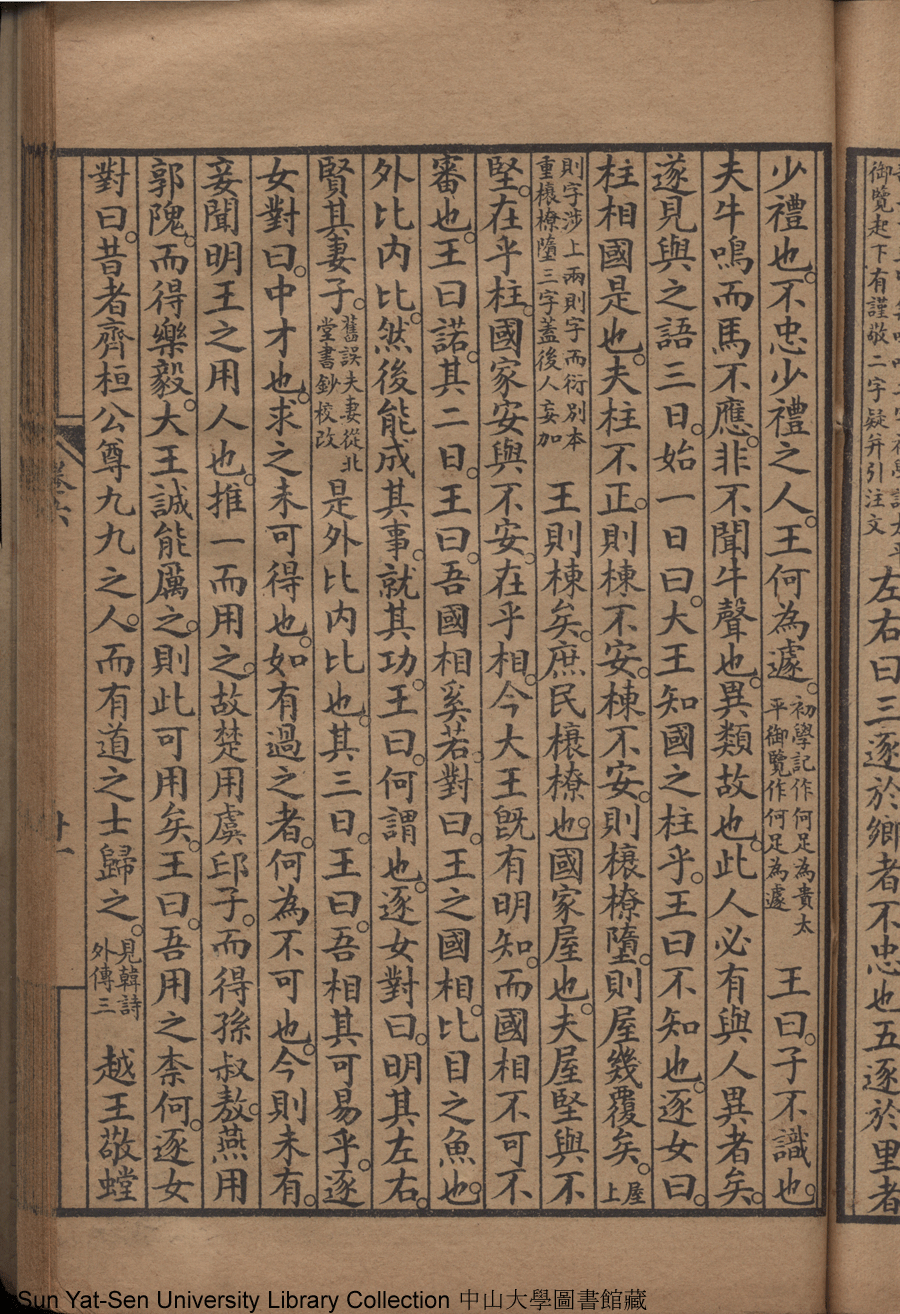 御覽起下有謹敬二字疑并引注文
左右曰三逐於鄉者不忠也五逐於里者
少禮也。不忠少禮之人。王何為遽。初學記作何足為貴太平御覽作何足為遽 王曰。子不識也。
夫牛鳴而馬不應。非不聞牛聲也。異類故也。此人必有與人異者矣。
遂見與之語三日。始一日曰。大王知國之柱乎。王曰不知也。逐女曰。
柱相國是也。夫柱不正。則棟不安。棟不安。則榱橑墮。則屋幾覆矣。屋上
則字涉上兩則字而衍別本重榱橑墮三字蓋後人妄加 王則棟矣。庶民榱橑也。國家屋也。夫屋堅與不
堅。在乎柱。國家安與不安。在乎相。今大王既有明知。而國相不可不
審也。王曰諾。其二日。王曰。吾國相奚若。對曰。王之國相。比目之魚也。
外比內比。然後能成其事。就其功。王曰。何謂也。逐女對曰。明其左右。
賢其妻子。舊誤夫妻從北堂書鈔校改 是外比內比也。其三日。王曰。吾相其可易乎。逐
女對曰。中才也。求之未可得也。如有過之者。何為不可也。今則未有。
妾聞明王之用人也。推一而用之。故楚用虞邱子。而得孫叔敖。燕用
郭隗。而得樂毅。大王誠能厲之。則此可用矣。王曰。吾用之柰何。逐女
對曰。昔者齊桓公尊九九之人。而有道之士歸之。見韓詩外傳三 越王敬螳
卷六
廿一
Sun Yat-Sen University Library Collection 中山大學圖書館藏